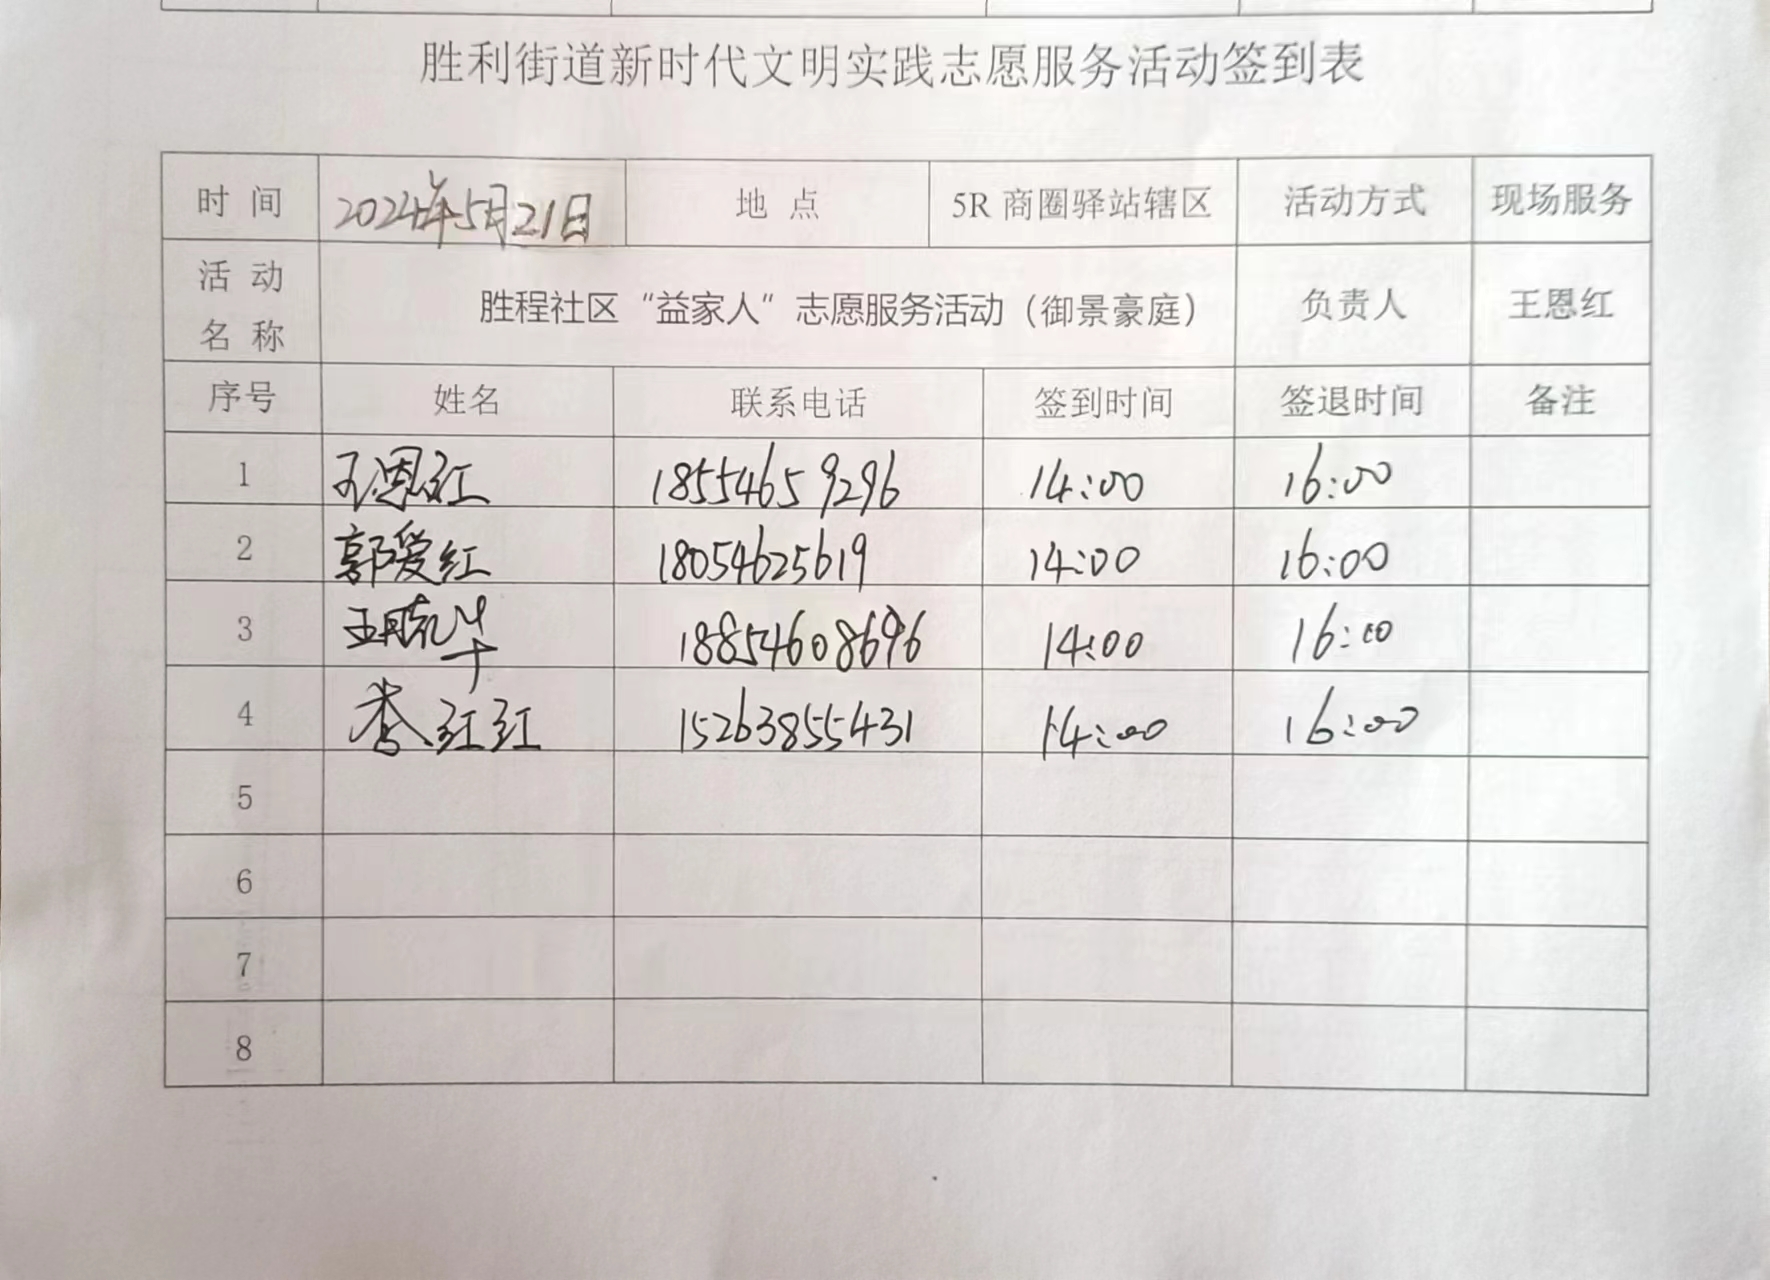 胜利街道新时代文明实践志愿服务活动签到表
时 间 2024年5月21日 地 点 5R 商圈驿站辖区 活动方式 现场服务
活 动
名 称 胜程社区“益家人”志愿服务活动（御景豪庭） 负责人 王恩红
序号 姓名 联系电话 签到时间 签退时间 备注
1 王恩红 18554659296 14:00 16:00
2 郭爱红 18054625619 14:00 16:00
3 18854608696 14:00 16:00
4 李红红 15263855431 14:00 16:00
5
6
7
8